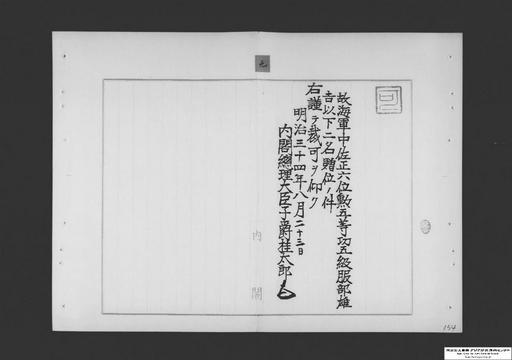 故海軍中佐正六位勲五等功五級服部雄
吉以下二名贈位ノ件
右謹テ裁可ヲ仰ク
明治三十四年八月二十三日
内閣總理大臣子爵桂太郎
内閣
154